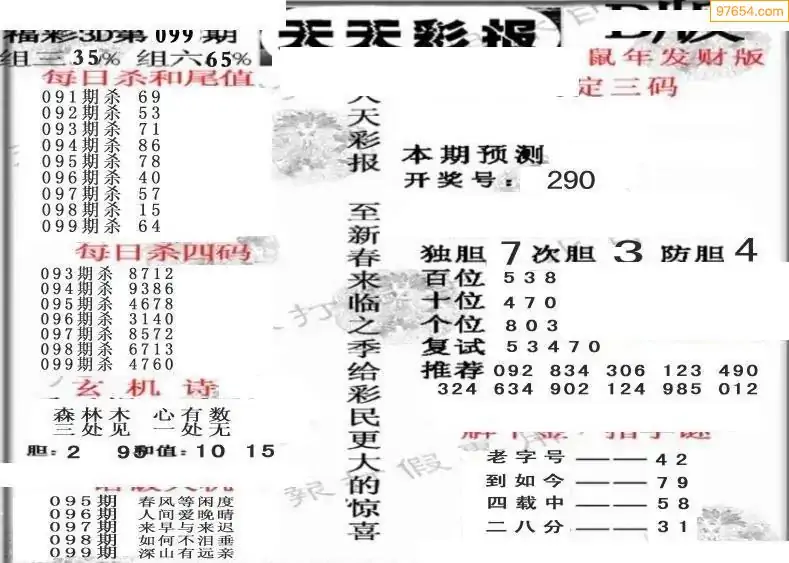 97654.com
福彩3D第099期
天天彩报
B版
组三35% 组六65%
鼠年发财版
每日杀和尾值
091期杀 69
092期杀 53
093期杀 71
094期杀 86
095期杀 78
096期杀 40
097期杀 57
098期杀 15
099期杀 64
每日杀四码
093期杀 8712
094期杀 9386
095期杀 4678
096期杀 3140
097期杀 8572
098期杀 6713
099期杀 4760
玄机诗
森林木 心有数
三处见 一处无
胆:2 95 和值:10 15
095期 春风等闲度
096期 人间爱晚晴
097期 来早与来迟
098期 如何不泪垂
099期 深山有远亲
天彩报 至新春来临之季给彩民更大的惊喜
定三码
本期预测
开奖号: 290
独胆 7 次胆 3 防胆 4
百位 538
十位 470
个位 803
复试 53470
推荐 092 834 306 123 490
324 634 902 124 985 012
老字号——42
到如今——79
四载中——58
二八分——31